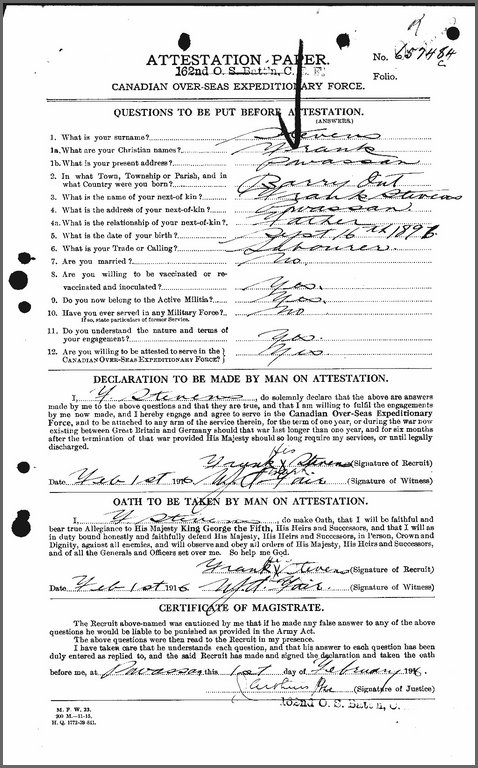 ATTESTATION PAPER. No. 657484
162nd O. S. Batt'n, C. E. F. Folio.
CANADIAN OVER-SEAS EXPEDITIONARY FORCE.
QUESTIONS TO BE PUT BEFORE ATTESTATION.
(ANSWERS.)
1. What is your surname? Stevens
1a. What are your Christian names? Frank
1b. What is your present address? Powassan
2. In what Town, Township or Parish, and in
what Country were you born? Parry Ont
3. What is the name of your next-of-kin? Frank Stevens
4. What is the address of your next-of-kin? Powassan
4a. What is the relationship of your next-of-kin? Father
5. What is the date of your birth? Sept 16th 1896
6. What is your Trade or Calling? Labourer
7. Are you married? No.
8. Are you willing to be vaccinated or re-
vaccinated and inoculated? Yes.
9. Do you now belong to the Active Militia? Yes.
10. Have you ever served in any Military Force? No
If so, state particulars of former Service.
11. Do you understand the nature and terms of
your engagement? Yes
12. Are you willing to be attested to serve in the
CANADIAN OVER-SEAS EXPEDITIONARY FORCE? Yes
DECLARATION TO BE MADE BY MAN ON ATTESTATION.
I, F Stevens, do solemnly declare that the above are answers
made by me to the above questions and that they are true, and that I am willing to fulfil the engagements
by me now made, and I hereby engage and agree to serve in the Canadian Over-Seas Expeditionary
Force, and to be attached to any arm of the service therein, for the term of one year, or during the war now
existing between Great Britain and Germany should that war last longer than one year, and for six months
after the termination of that war provided His Majesty should so long require my services, or until legally
discharged.
His
Frank X Stevens (Signature of Recruit)
Mark
Date Feb 1st 1916 Fair (Signature of Witness)
OATH TO BE TAKEN BY MAN ON ATTESTATION.
I, F Stevens, do make Oath, that I will be faithful and
bear true Allegiance to His Majesty King George the Fifth, His Heirs and Successors, and that I will as
in duty bound honestly and faithfully defend His Majesty, His Heirs and Successors, in Person, Crown and
Dignity, against all enemies, and will observe and obey all orders of His Majesty, His Heirs and Successors,
and of all the Generals and Officers set over me. So help me God.
Frank X Stevens (Signature of Recruit)
Date Feb 1st 1916 Fair (Signature of Witness)
CERTIFICATE OF MAGISTRATE.
The Recruit above-named was cautioned by me that if he made any false answer to any of the above
questions he would be liable to be punished as provided in the Army Act.
The above questions were then read to the Recruit in my presence.
I have taken care that he understands each question, and that his answer to each question has been
duly entered as replied to, and the said Recruit has made and signed the declaration and taken the oath
before me, at Powassan this 1st day of February 1916.
(Signature of Justice)
162nd O. S. Batt'n, C.
M. F. W. 23.
200 M.—11-15.
H. Q. 1772-39 841.